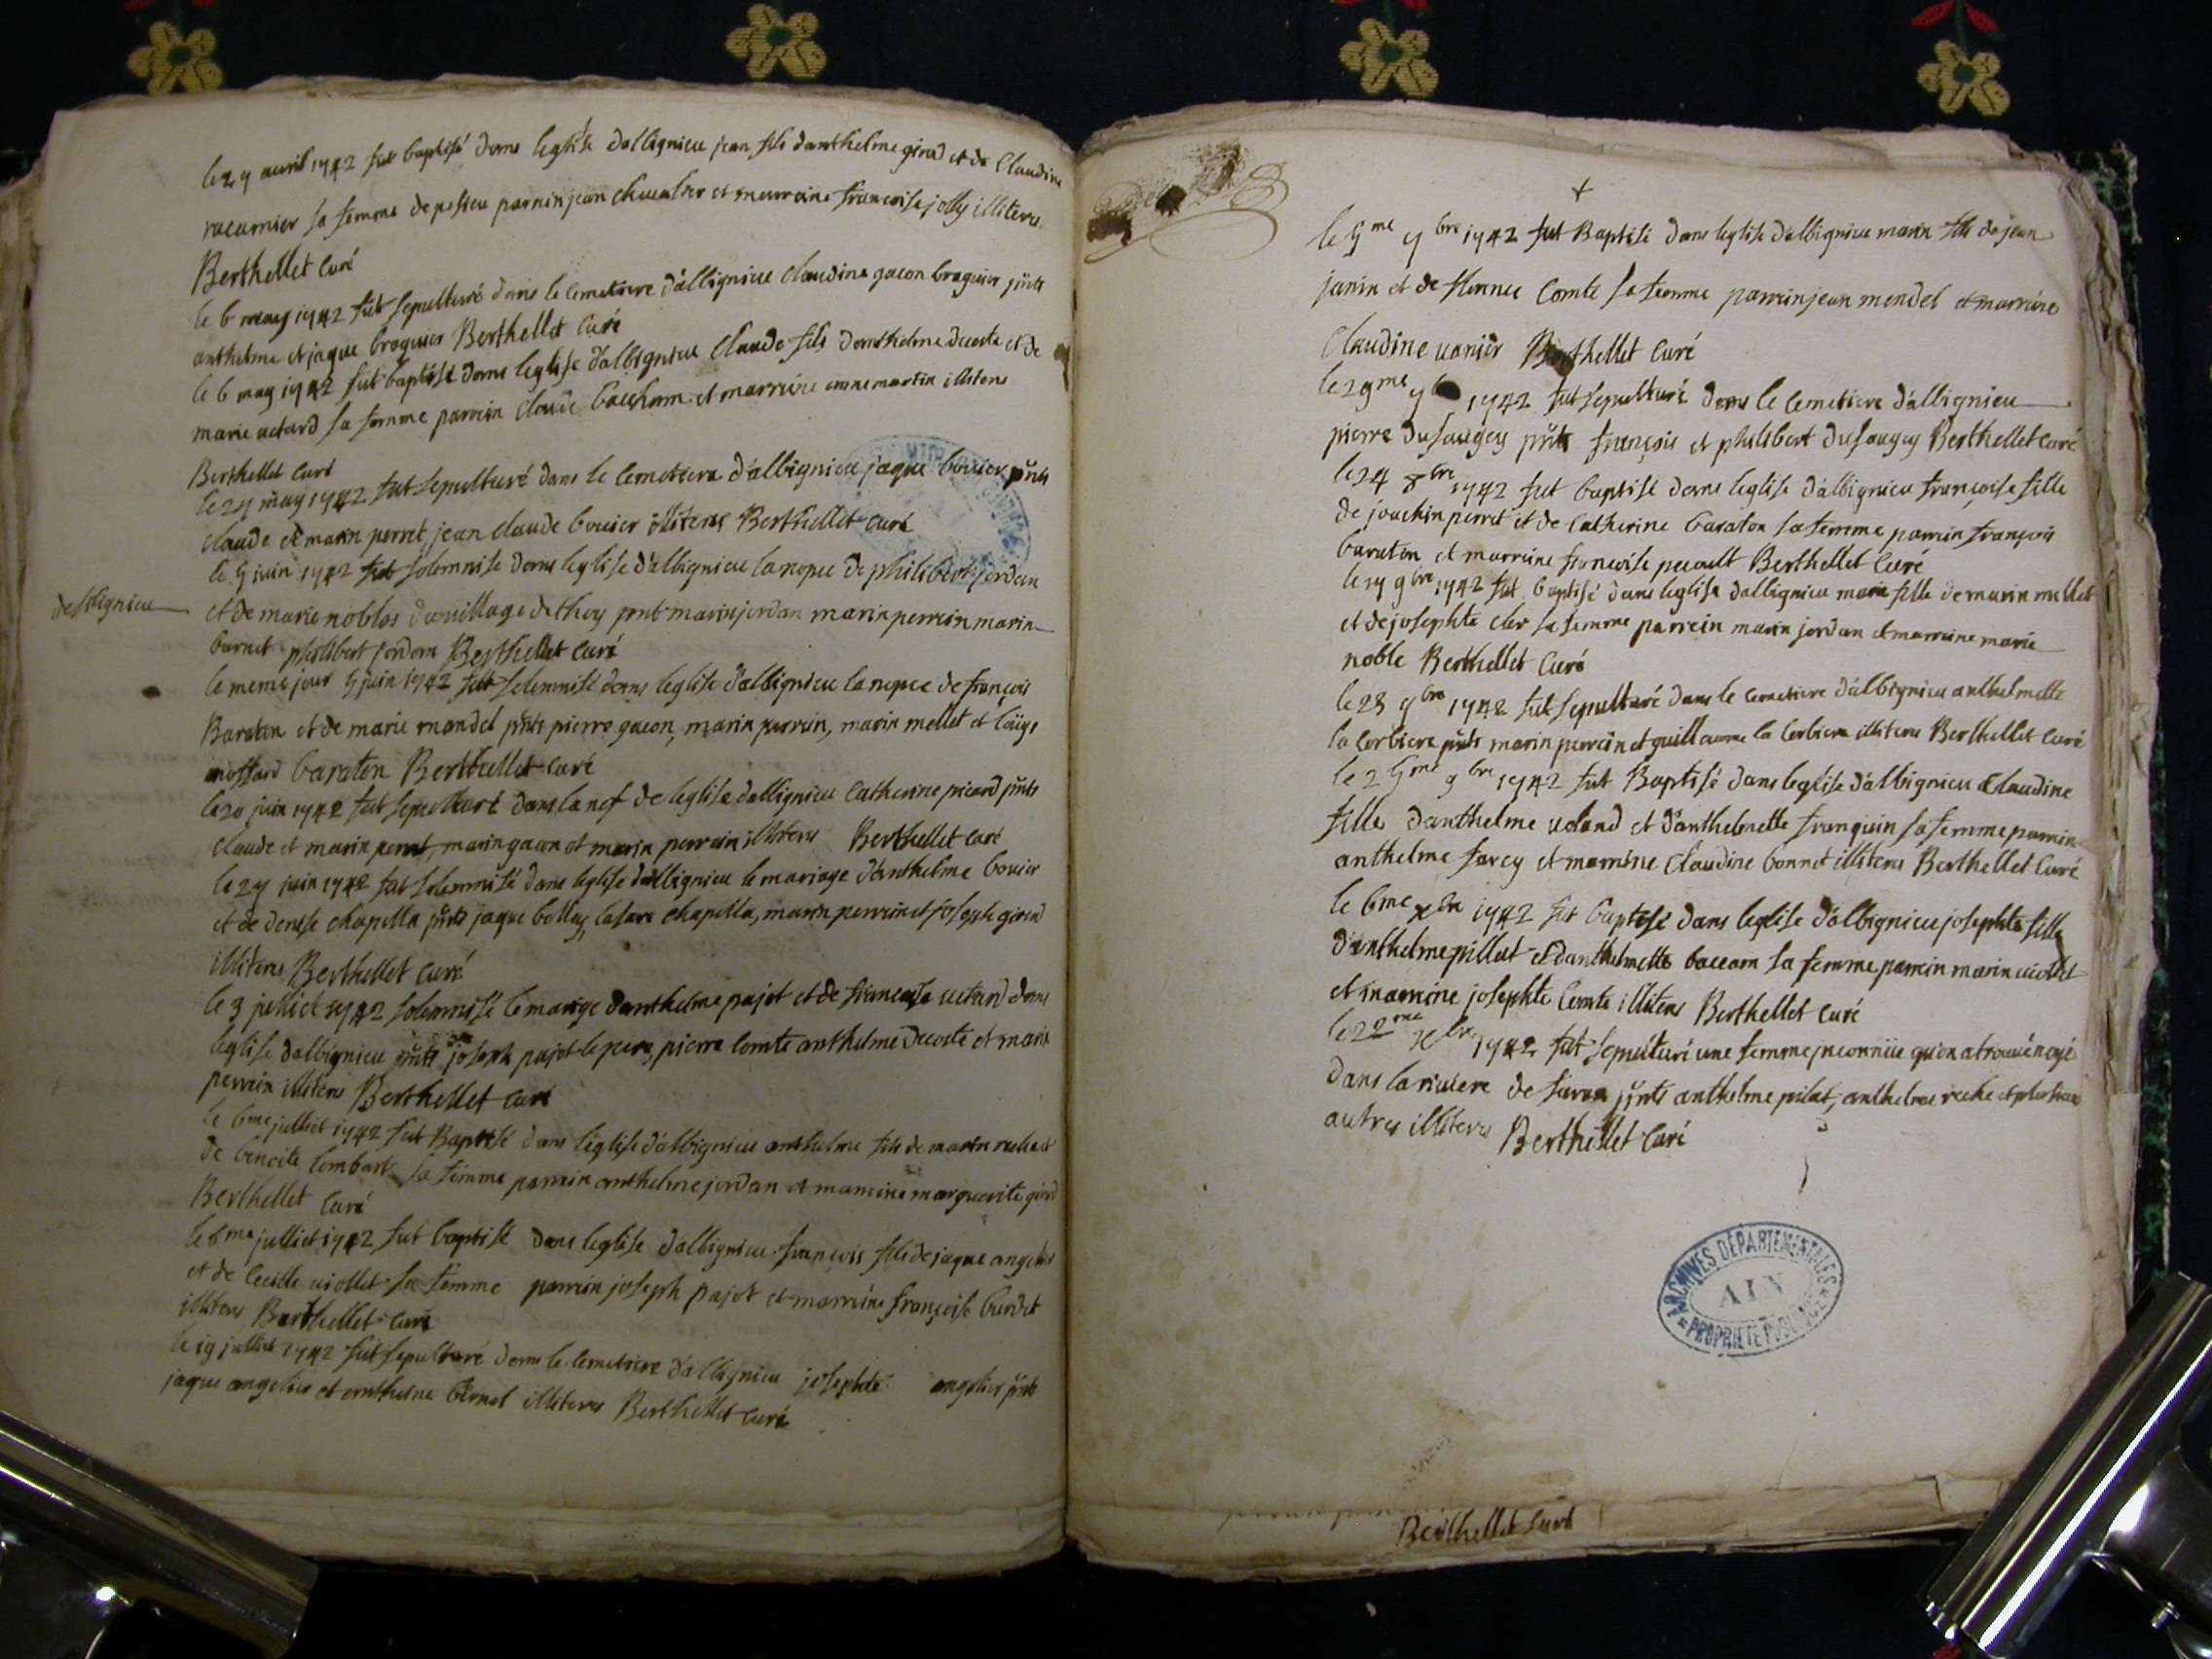 le 27 auril 1742 fut baptisé dans leglise dalbignieu jean fils danthelme girod et de Claudine
sa femme de parrin jean cheualier et marraine francoise jolly illiteres
Berthellet Curé
le 6 may 1742 fut sepulturé dans le Cemetiere d'albignieu Claudine gacon braguier pnts
anthelme et jaque braguier Berthellet Curé
le 6 may 1742 fut baptisé dans leglise d'albignieu Claude fils danthelme ducoste et de
marie uetard sa femme parrein Claude et marreine anne martin illiteres
Berthellet Curé
le 27 may 1742 fut sepulturé dans le Cemetiere d'albignieu jaque bouier pnts
claude et marin perret, jean claude bouier illiteres Berthellet curé
le 7 juin 1742 fut solemnise dans leglise d'albignieu la nopce de philibert jordan
dalbignieu et de marie noblos du uillage de thoy pnts marin jordan marin perrein marin
burnet philibert jordan Berthellet Curé
le meme jour 7 juin 1742 fut solemnisé dans leglise d'albignieu la nopce de françois
Baraton et de marie mandel pnts pierre gacon, marin perrein, marin mellet et
baraton Berthellet Curé
le 20 juin 1742 fut sepulturé dans la nef de leglise dalbignieu Catherine picard pnts
claude et marin perret, marin gacon et marin perrein illiteres Berthellet Curé
le 27 juin 1742 fut solemnisé dans leglise dalbignieu le mariage d'anthelme bouier
et de denise chapella pnts jaque bolley, lasare chapella, marin perrein et joseph girod
illiteres Berthellet Curé
le 3 julliet 1742 solemnisé le mariage danthelme pajot et de francoise uetard dans
leglise dalbignieu pnts joseph pajot le pere, pierre Comte anthelme ducoste et marin
perrein illiteres Berthellet Curé
le 6me julliet 1742 fut Baptisé dans léglise d'albignieu anthelme fils de marin reche et
de benoite lombart sa femme parrein anthelme jordan et marreine marguerite girod
Berthellet Curé
le 6me julliet 1742 fut baptisé dans leglise d'albignieu françois fils de jaque angelier
et de Cecille uiollet sa femme parrein joseph pajot et marreine françoise burdet
illiteres Berthellet Curé
le 19 julliet 1742 fut sepulturé dans le Cemetiere d'albignieu josephte angelier pnts
jaque angelier et anthelme illiteres Berthellet Curé
le 7me 7bre 1742 fut Baptisé dans leglise d'albignieu marin fils de jean
janin et de Comte sa femme parrein jean mendel et marreine
Claudine uanier Berthellet Curé
le 29me 1742 fut sepulturé dans le Cemetiere d'albignieu
pierre dusaugey pnts françois et philibert dusaugey Berthellet Curé
le 24 8bre 1742 fut baptisé dans leglise d'albignieu françoise fille
de joachin perret et de Catherine baraton sa femme parrein françois
baraton et marreine francoise Berthellet Curé
le 17 9bre 1742 fut baptisé dans leglise dalbignieu marie fille de marin mellet
et de josephte cler sa femme parrein marin jordan et marreine marie
noble Berthellet Curé
le 23 9bre 1742 fut sepulturé dans le Cemetiere d'albignieu anthelmette
la Corbiere pnts marin perrein et guillaume la Corbiere illiteres Berthellet Curé
le 27me 9bre 1742 fut Baptisé dans leglise d'albignieu Claudine
fille danthelme uoland et d'anthelmette franquin sa femme parrein
anthelme farcy et marreine Claudine bonnet illiteres Berthellet Curé
le 6me xbre 1742 fut baptisé dans leglise d'albignieu josephte fille
d'anthelme pillat et danthelmette baccam sa femme parrein marin uiollet
et marreine josephte Comte illiteres Berthellet Curé
le 22me xbre 1742 fut sepulturé une femme jnconnüe qu'on a trouué noyé
dans la riuiere de furan pnts anthelme pilat, anthelme reche et plusieurs
autres illiteres Berthellet Curé
ARCHIVES DÉPARTEMENTALES
AIN
PROPRIÉTÉ PUBLIQUE
Berthellet Curé